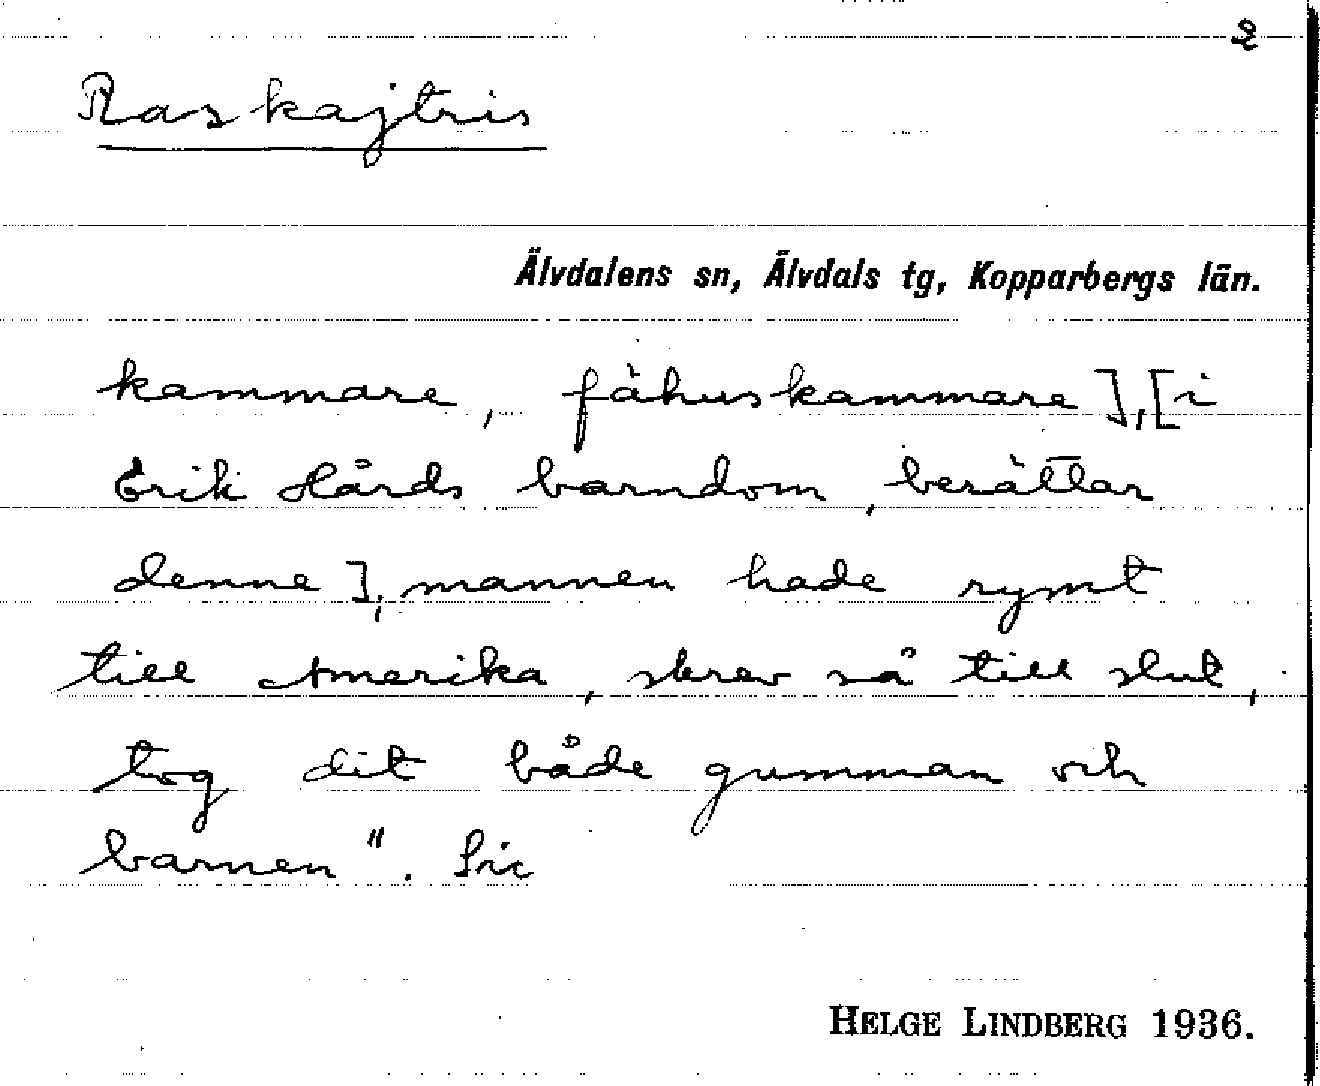 2
Raskajtris
Älvdalens sn, Älvdals tg, Kopparbergs län.
kammare, fähuskammare], [i
Erik Hårds barndom, berättar
denne]; mannen hade rymt
till Amerika, skrev så till slut,
tog dit både gumman och
barnen". Sic
HELGE LINDBERG 1936.